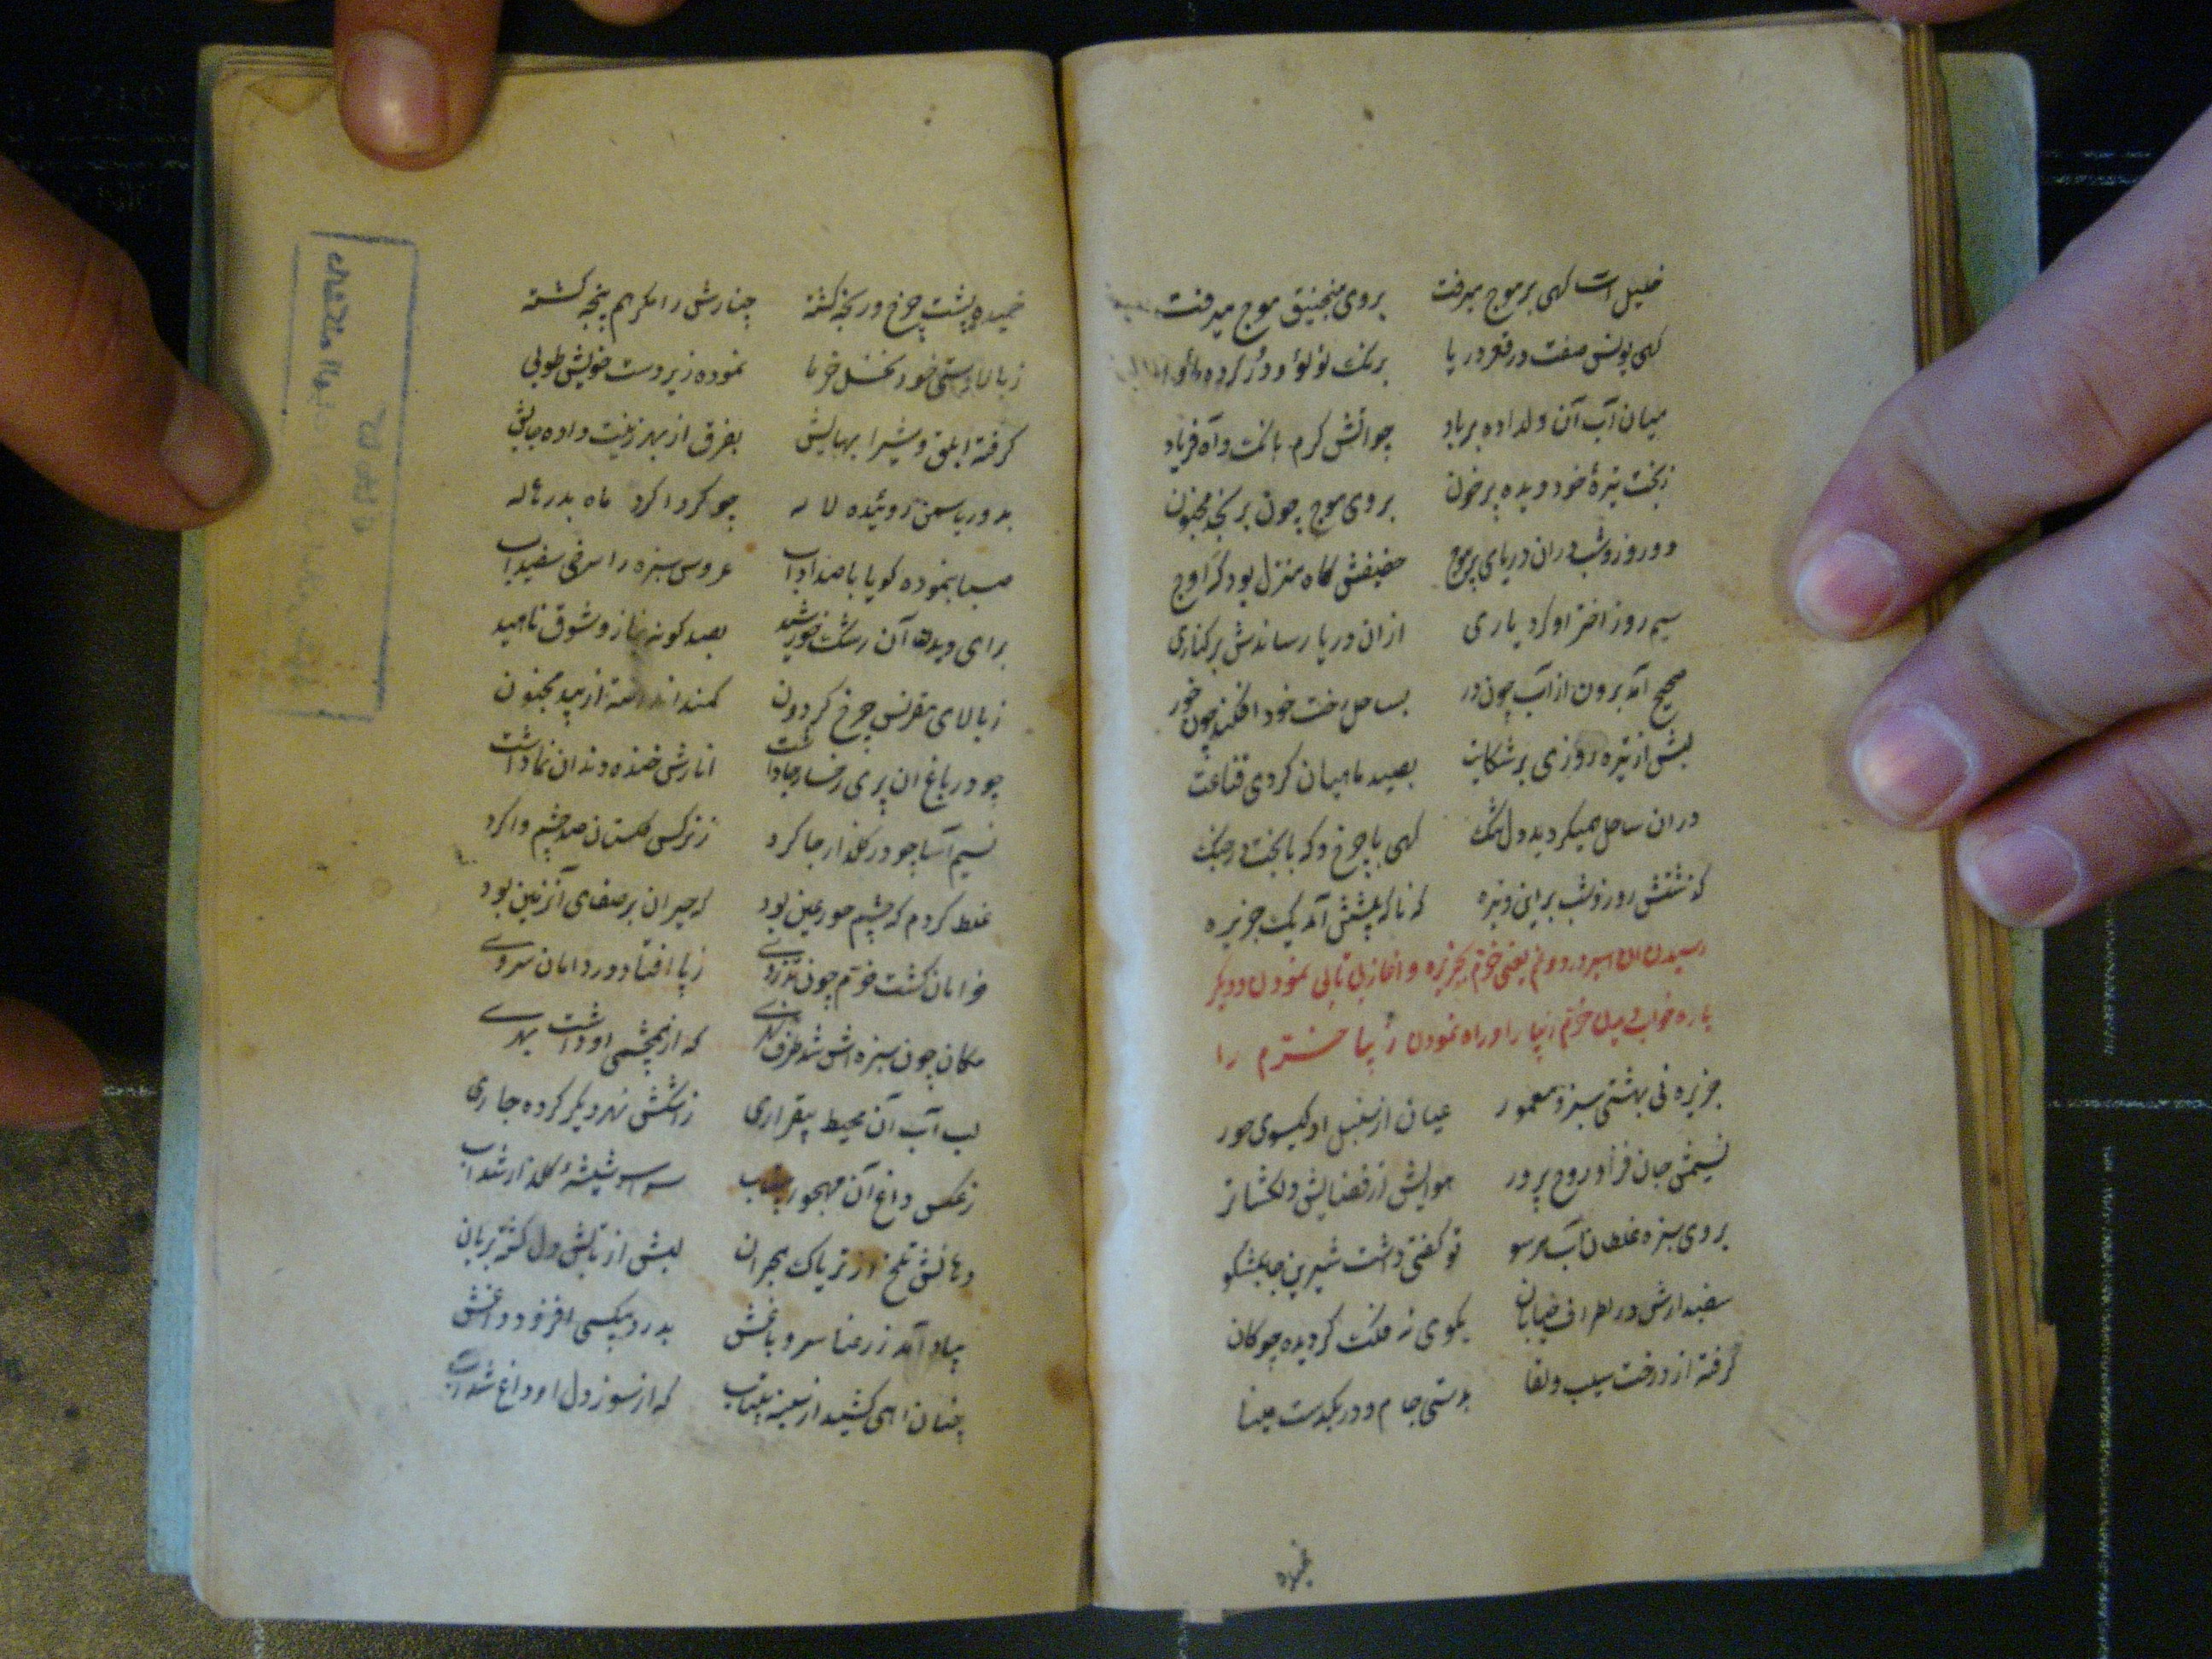 خلیل است کهی بر موج میرفت بروی منجنیق موج میرفت
کهی یونس صفت در قعر دریا برنک لؤلؤ و دُر کرده مأوا
میان آب آن دلداده بر باد چو آتش کرم بانک و آه فریاد
ز بخت تیرهٔ خود دیده پر خون بروی موج چون بر بحر مجنون
دو روز و شب دران دریای پر موج حضیضش کاه منزل بود کز اوج
سیم روز اختر او کرد یاری ازان دریا رساندش بر کناری
صحیح آمد برون از آب چون در بساحل رخت خود افکند چون خور
لبش از تیره روزی پر شکایت بصید ماهیان کردی قناعت
دران ساحل همیکردید دلتنک کهی با چرخ و که با بخت در جنک
کذشتش روز و شب بر این وتیره که ناکه پیشش آمد یک جزیره
رسیدن ان اسیر درد و غم یعنی خرم بجزیره و اغاز بی تابی نمودن و دیکر
باره خواب دیدن خرم زیبا را و راه نمودن زیبا خرم را
جزیره نی بهشتی سبز و معمور عیان از سنبل او کیسوی حور
نسیمش جان فزا و روح پرور هوایش از فضایش دلکشاتر
بروی سبزه غلطان آب هر سو تو کفتی داشت شیرین جا بمشکو
سفیدارش در اطراف خیابان بکوی نه فلک کردیده چوکان
کرفته از درخت سیب و لقا بدستی جام و در یکدست مینا
خمیده پشت چرخ و رنجه کشته چنارش را مکر هم پنجه کشته
ز بالا دستی خود نخل خرما نموده زیر دست خویش طوبی
کرفته ابلق و شیرا بهایش بفرق از بهر زینت داده جایش
بدور یاسمن روئیده لاله چو کرداکرد ماه بدر هاله
صبا بنموده کویا با صد آداب عروس سبزه را سرخی سفیداب
برای دیدن آن رشک خورشید بصد کونه نیاز و شوق ناهید
ز بالای مقرنس چرخ کردون کمند انداخته از بید مجنون
چو در باغ ان پری رخسار جا داشت انارش خنده دندان نما داشت
نسیم آسا چو در کلذار جا کرد ز نرکس کلستان صد چشم وا کرد
غلط کردم که چشم حور عین بود که حیران بر صفای آن زمین بود
خرامان کشت خرم چون تذروی ز پا افتاد در دامان سروی
مکان چون سبزه اش شد طرف نهری که از همچشمی او داشت بهری
لب آب آن محیط بیقراری ز اشکش نهر دیکر کرده جاری
ز عکس داغ آن مهجور بیتاب سراسر شیشهٔ کلدار شد آب
دهانش تلخ از تریاک هجران لبش از تابش دل کشته بریان
بیاد آمد ز رعنا سرو باغش بدرد بیکسی افزود داغش
چنان اهی کشید از سینه بیتاب که از سوز دل او داغ شد آب